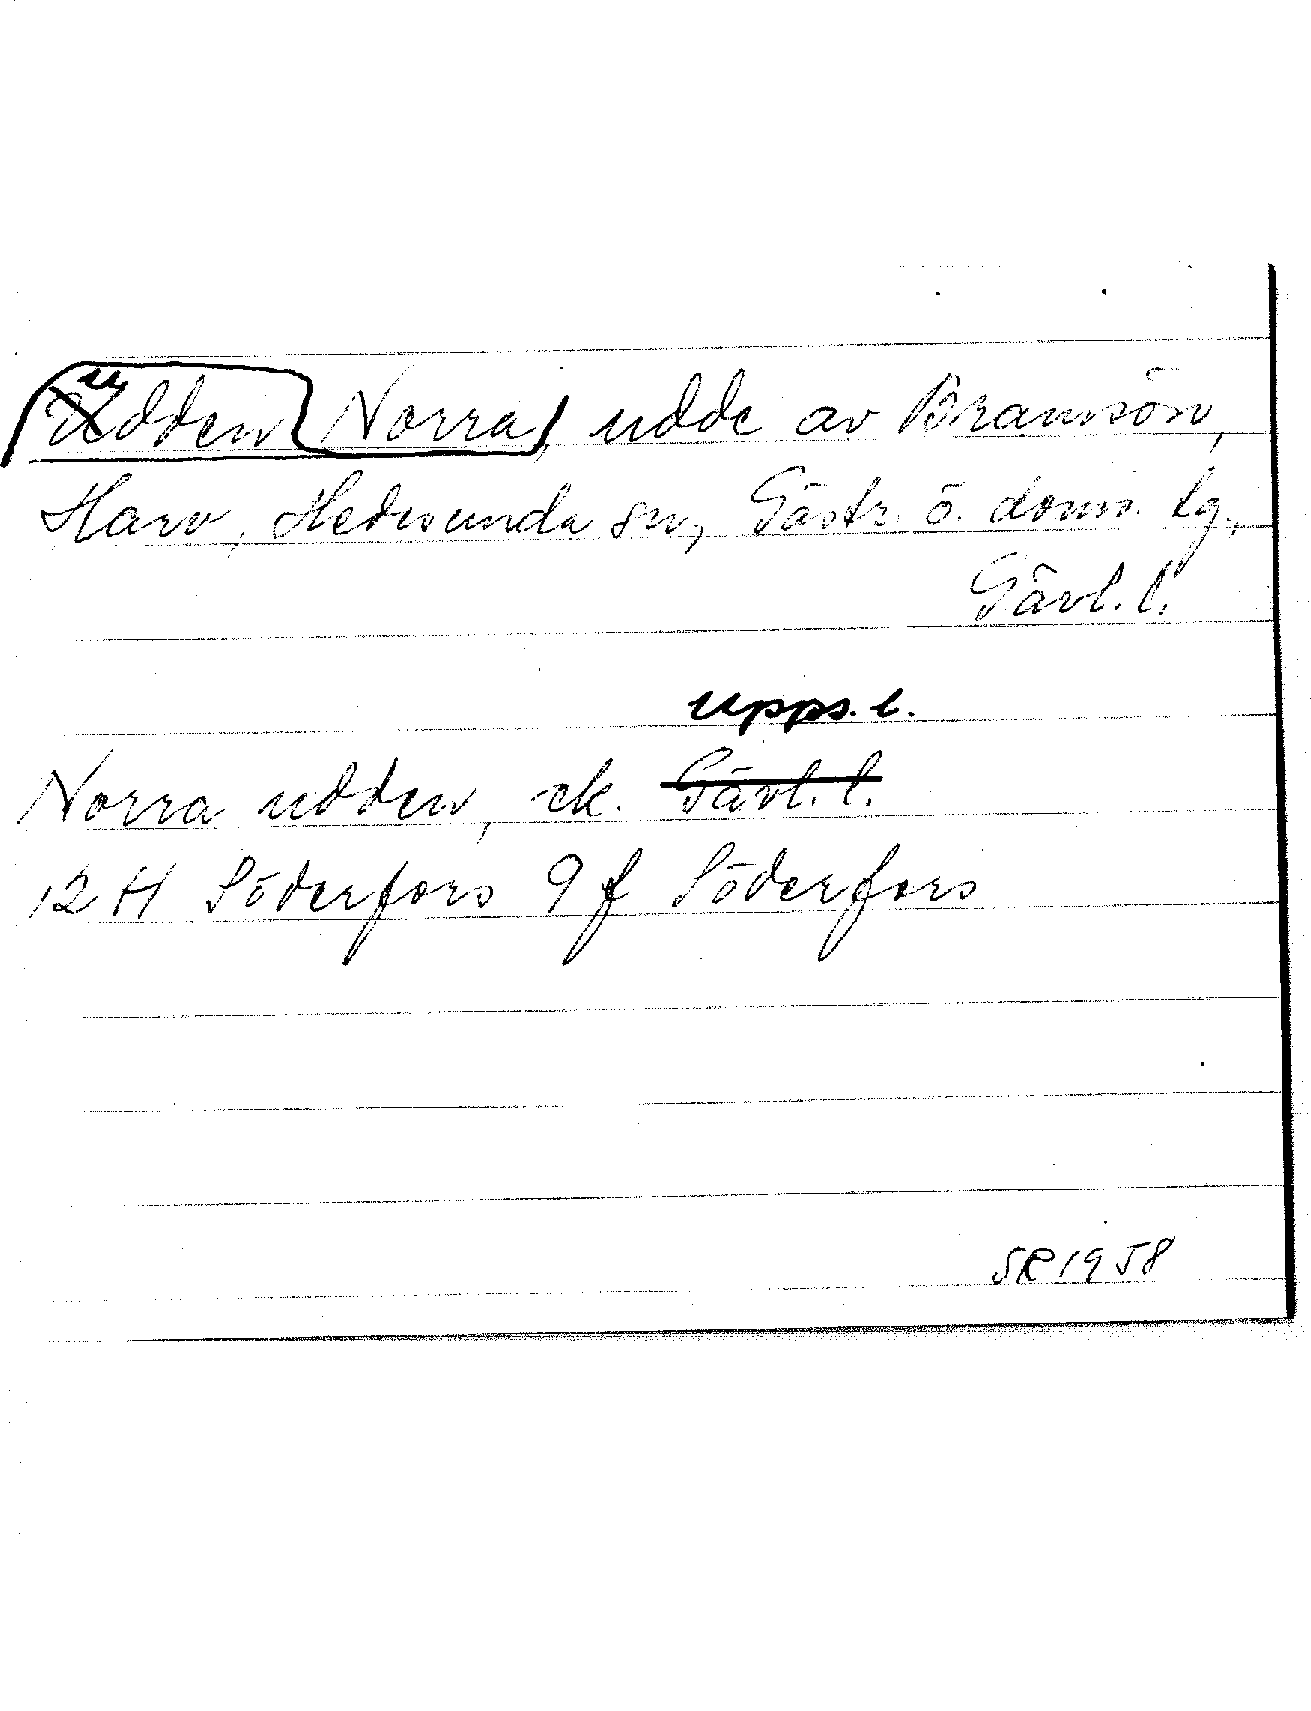 udden Norra, udde av Bramsön,
Harv, Hedesunda sn, Gästr. ö. doms. lg.,
Gävl. l.
Upps. l.
Norra udden, ek. Gävl. l.
12 H Söderfors 9 f Söderfors
SR 1958